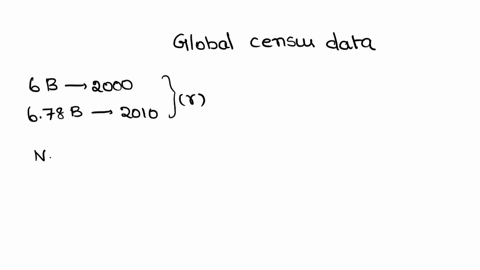 Global census data
6 B → 2000
6.78 B → 2010 } (r)
N.